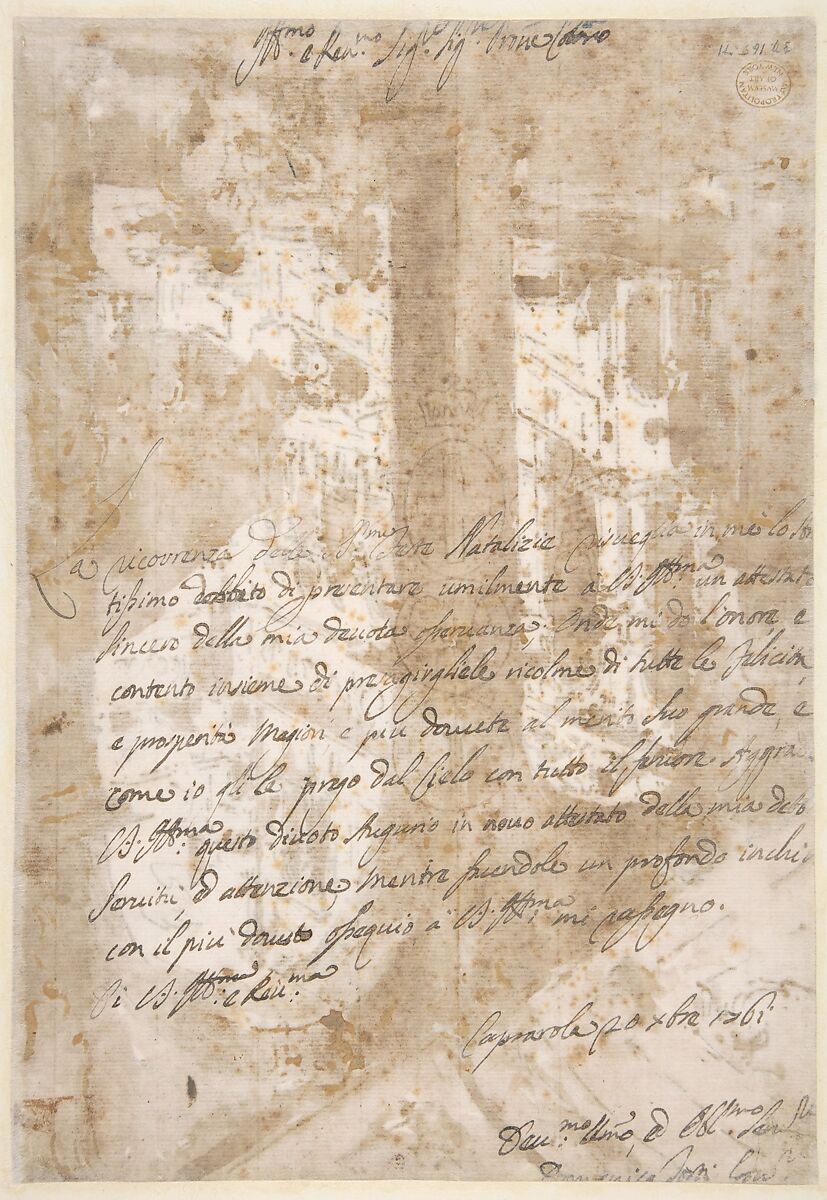 Ill.mo e Rev.mo Sig.re Sig.re Prone Col.mo
37.165.71
METROPOLITAN MUSEUM OF ART NEW YORK
La ricorrenza delle S.me Feste Natalizie risveglia in me lo
tissimo debbito di presentare umilmente a V.S. Ill.ma un attestato
sincero della mia devota osservanza; Onde mi do l'onore, e
contento insieme di presagirgliele ricolme di tutte le felicità
e prosperità magiori e più dovute al merito suo grande, e
come io gli le prego dal Cielo con tutto il fervore. Aggra
V.S. Ill.ma questo divoto Augurio in novo attestato della mia
servitù, ed attenzione, mentre facendole un profondo inchi
con il più dovuto ossequio, a V.S. Ill.ma mi rassegno.
Di V.S. Ill.ma e Rev.ma
Caprarola 20 Xbre 1761
Dev.mo Umo, ed Obl.mo